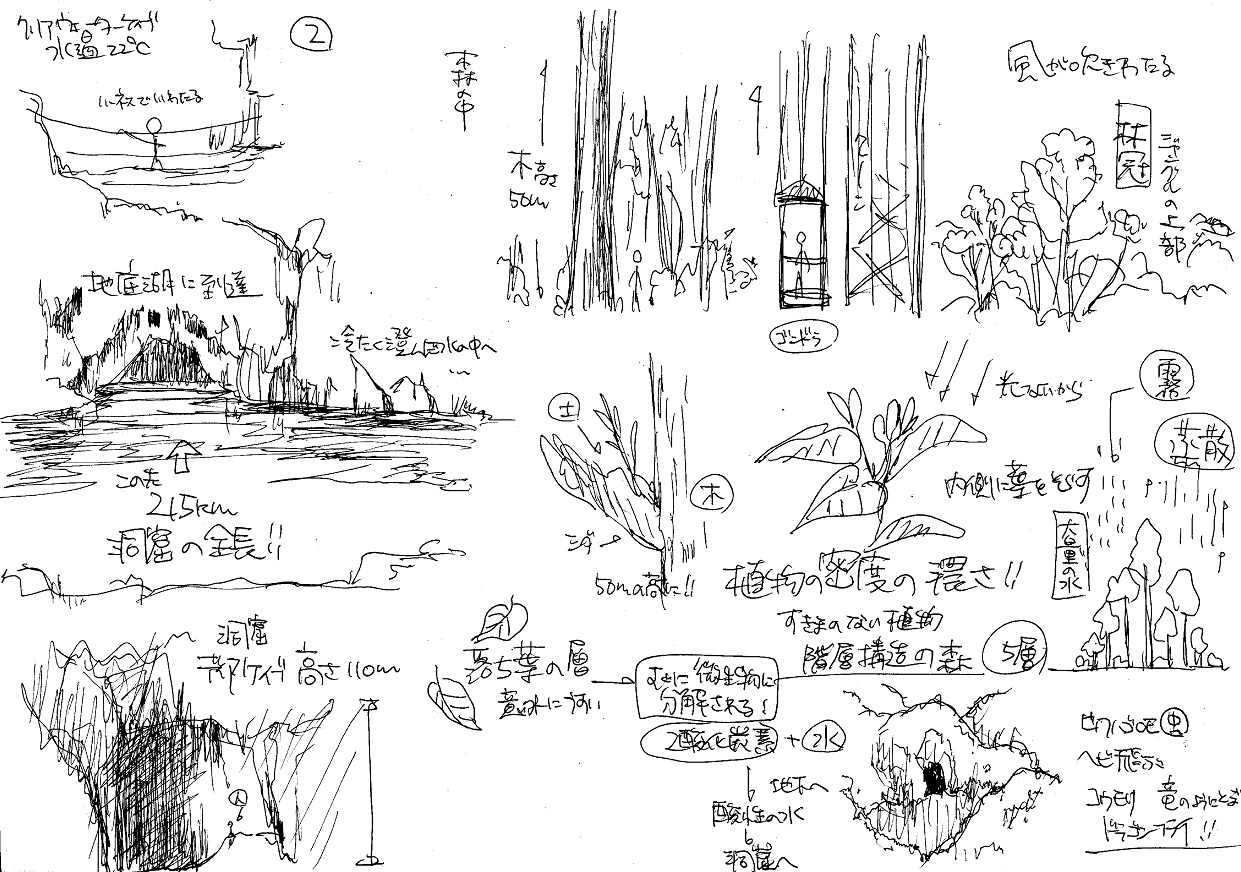 クリアウォーターケイブ
水温22℃
②
地底湖に到達
冷たく澄んだ水の中へ
…
この先
215km
洞窟の全長!!
洞窟
ディアケイブ 高さ110m
森林の中
木高さ
50m
ゴンドラ
風が吹きわたる
林冠
ジャングルの上部
土
木
シダ
50mの高さに!!
光でないから
内側に葉をのばす
植物の密度の濃さ!!
すきまのない植物
階層構造の森
5層
霧
蒸散
大量の水
落ち葉の層
意外にうすい
すぐに微生物に
分解される!
2酸化炭素 + 水
地下へ
酸性の水
洞窟へ
虫
ヘビ飛ぶ
コウモリ 竜のようにとぶ
ドラゴンフライ!!